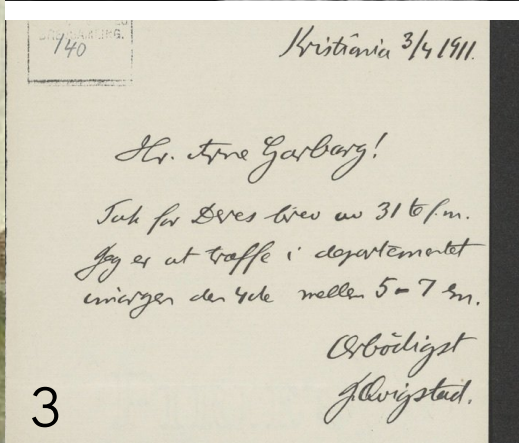 140
Kristiania 3/4 1911.
Hr. Arne Garborg!
Tak for Deres brev av 31te f.m.
Jeg er at træffe i departementet
imorgen den 4de mellem 5-7 em.
Ærbödigst
J. Qvigstad.
3